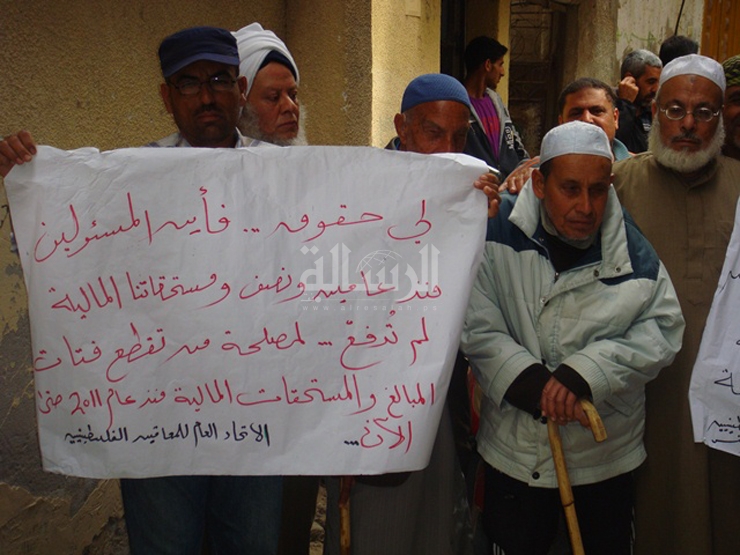 لي حقوق .. فأين المسئولين
منذ عامين ونصف ومستحقاتنا المالية
لم تدفع ... لمصلحة من تقطع فتات
المبالغ والمستحقات المالية منذ عام 2011 حتى
الآن...
الاتحاد العام للمعاقين الفلسطينين
الرسالة